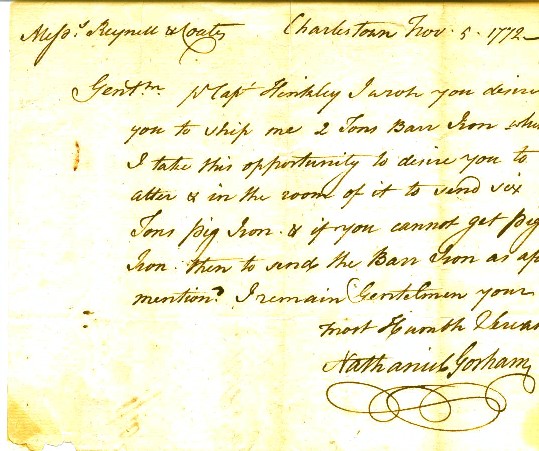 Messrs. Reynell & Coates Charlestown Nov. 5. 1772
Gentm. Pr Capt Hinkley I wrote you desire
you to ship me 2 Tons Barr Iron whi
I take this opportunity to desire you to
alter & in the room of it to send six
Tons pig Iron. & if you cannot get pig
Iron. then to send the Barr Iron as
mentiond. I remain Gentelmen your
most Humble Serva
Nathaniel Gorham